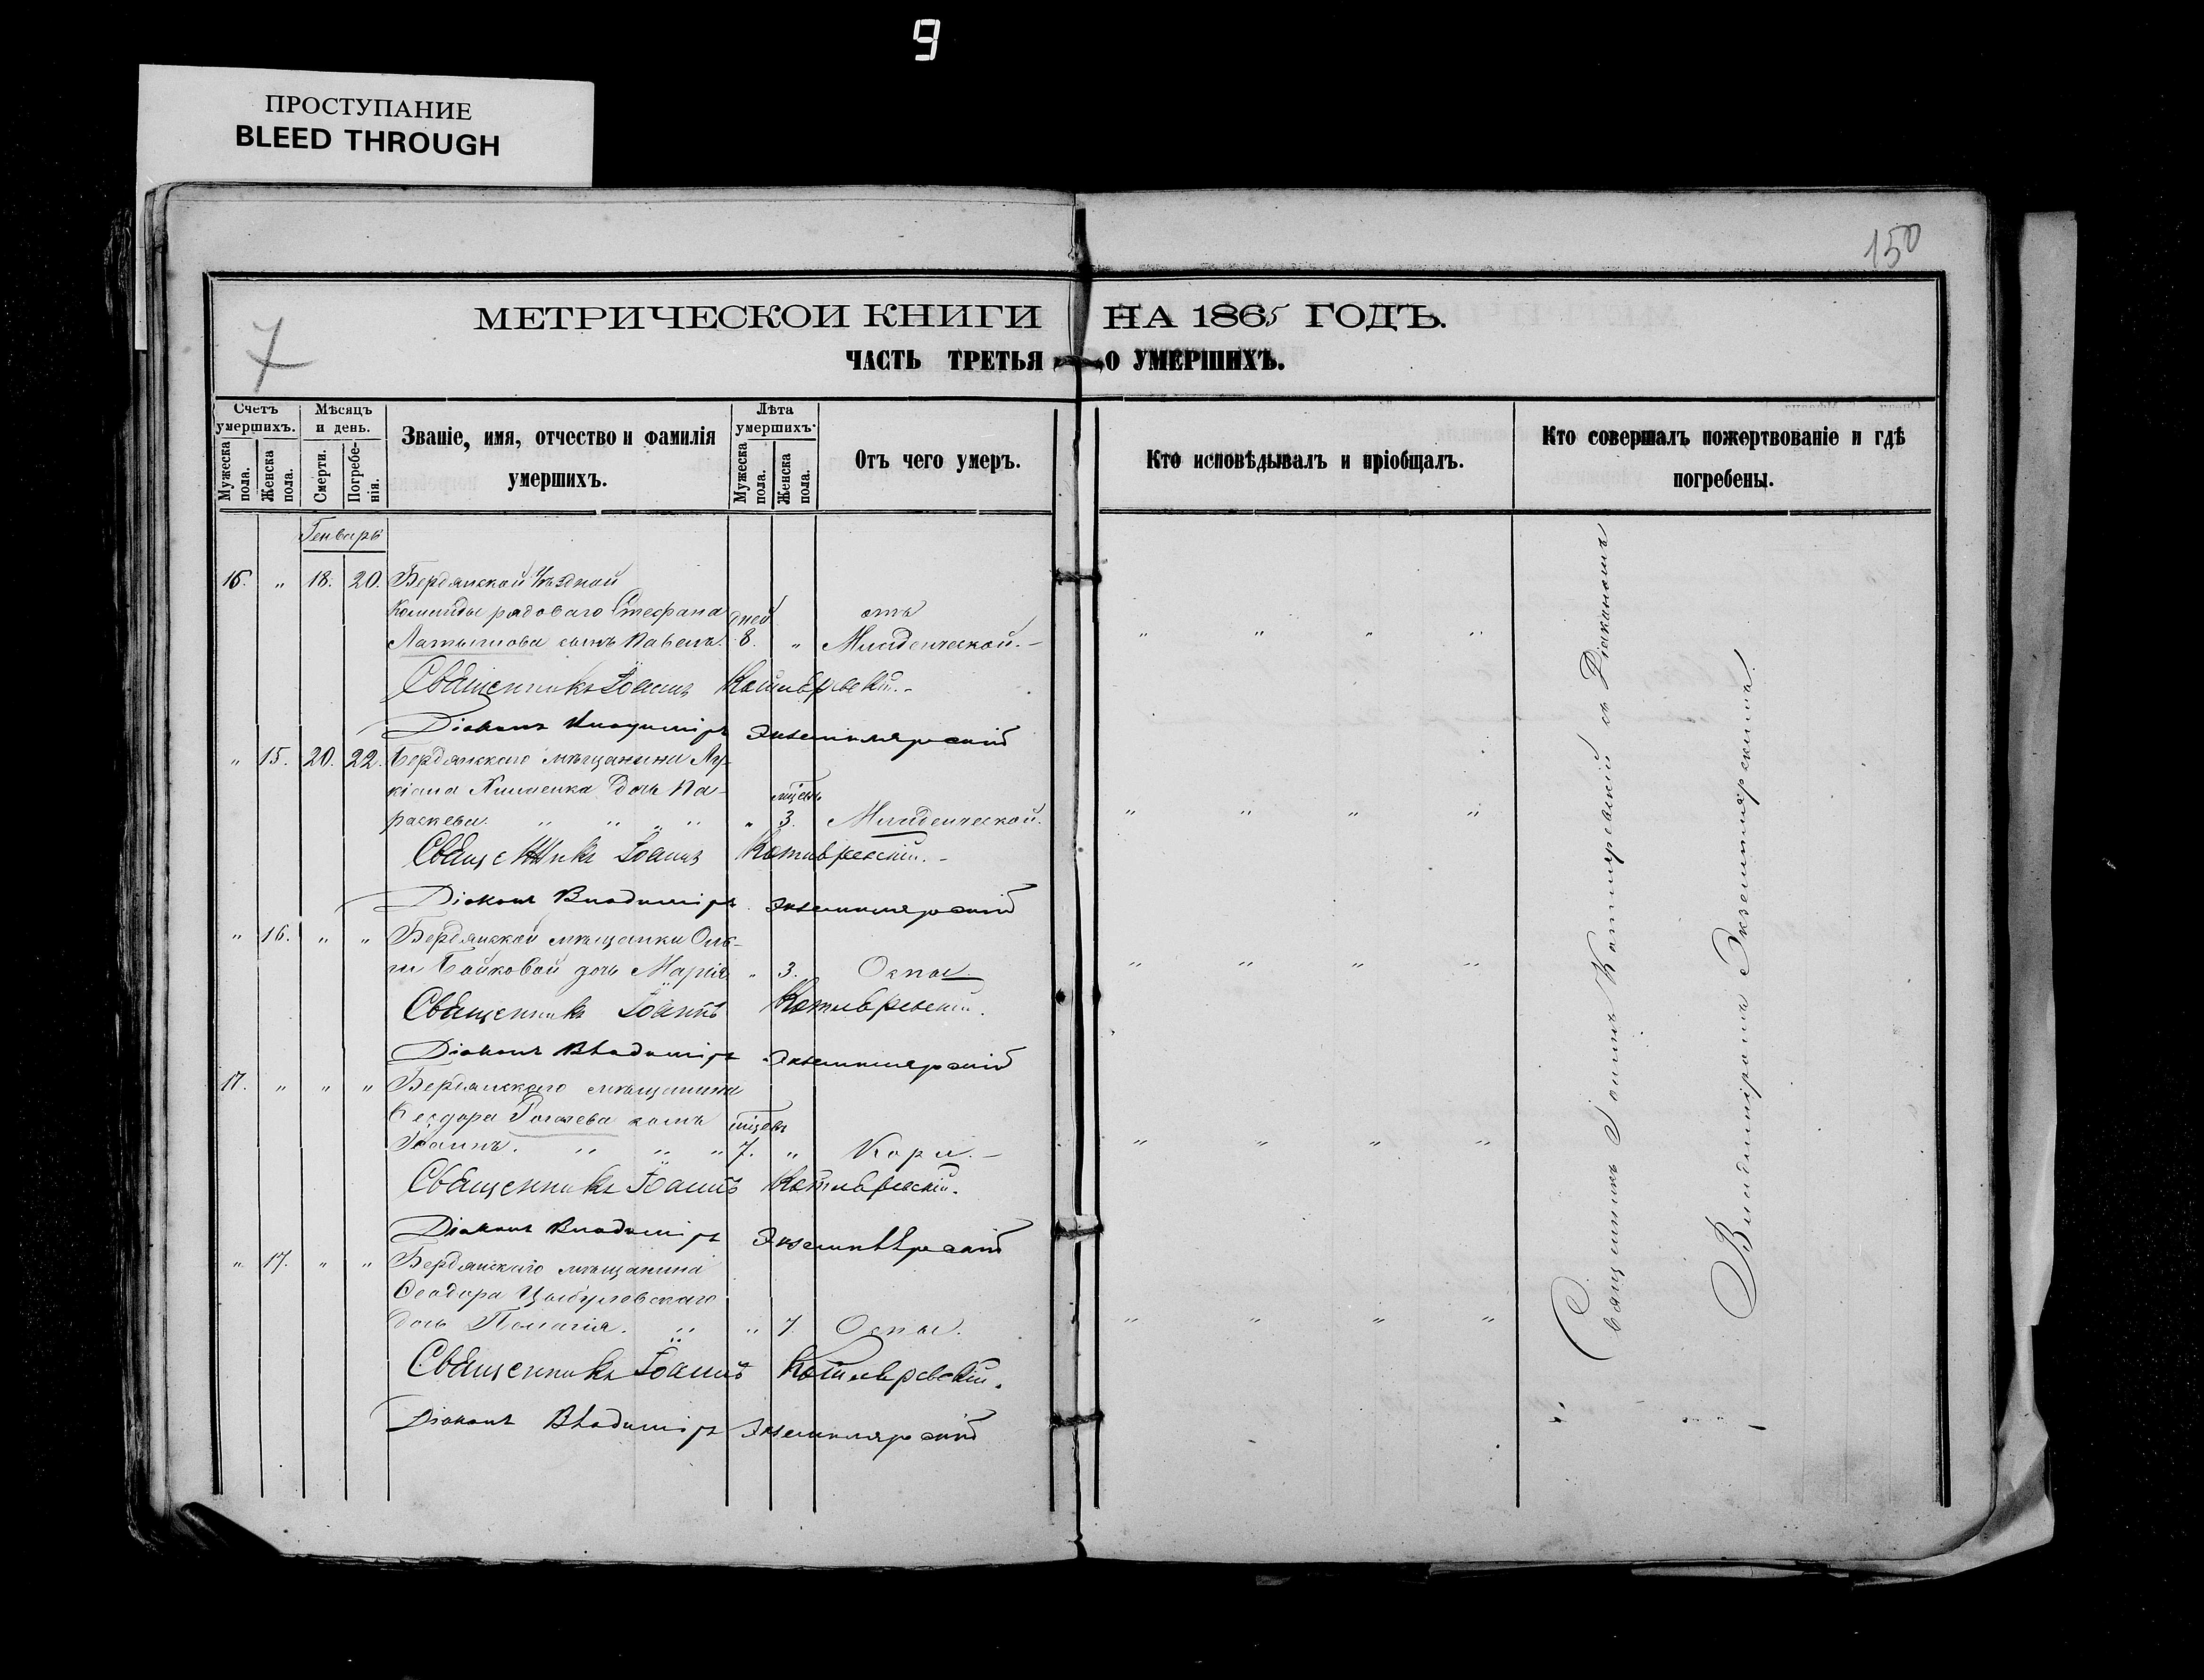 9
ПРОСТУПАНИЕ
BLEED THROUGH
150
7
МЕТРИЧЕСКОЙ КНИГИ НА 1865 ГОДЪ.
ЧАСТЬ ТРЕТЬЯ О УМЕРШИХЪ.
Счетъ умершихъ.
Мужеска пола.
Женска пола.
Мѣсяцъ и день.
Смерти.
Погребенія.
Званіе, имя, отчество и фамилія умершихъ.
Лѣта умершихъ.
Мужеска пола.
Женска пола.
Отъ чего умеръ.
Кто исповѣдывалъ и пріобщалъ.
Кто совершалъ пожертвованіе и гдѣ погребены.
Генварь
16. " 18. 20. Бердянской Уѣздной
Команды рядоваго Стефана дней отъ
Латышова сынъ Павелъ. 8. " Младенческой. " " " "
Священникъ Іоаннъ Котляревскій.
Діаконъ Владимиръ Экземплярскій
" 15. 20. 22. Бердянскаго мѣщанина Лу-
кіана Клименка дочь Па- мѣсяц
раскева. " " " " " 3. Младенческой. " " " "
Священникъ Іоаннъ Котляревскій.
Діаконъ Владимиръ Экземплярскій
" 16. " " Бердянской мѣщанки Оль-
ги Бойковой дочь Марія " 3. Оспы. " " " "
Священникъ Іоаннъ Котляревскій.
Діаконъ Владимиръ Экземплярскій
17. " " " Бердянскаго мѣщанина
Ѳеодора Рогачева сынъ мѣсяц
Іоаннъ. " " " 7. " Кори. " " " "
Священникъ Іоаннъ Котляревскій.
Діаконъ Владимиръ Экземплярскій
" 17. " " Бердянскаго мѣщанина
Ѳеодора Цыбулевскаго
дочь Пелагія. " " 7. Оспы. " " " "
Священникъ Іоаннъ Котляревскій.
Діаконъ Владимиръ Экземплярскій
Священникъ Іоаннъ Котляревскій съ Діакономъ
Владимиромъ Экземплярскимъ.